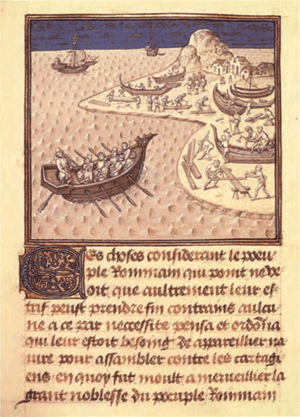 Ces choses considerant le poeu
ple Rommain qui point ne ve
oit que aultrement leur es
trif peust prendre fin contrains aulcu
ne a ce par necessite pensa et ordona
qui leur estoit besoing de apareillier na
uire pour assambler contre les cartagi
ens en quoy fut moult a merveillier la
grant noblesse du poeuple Rommain